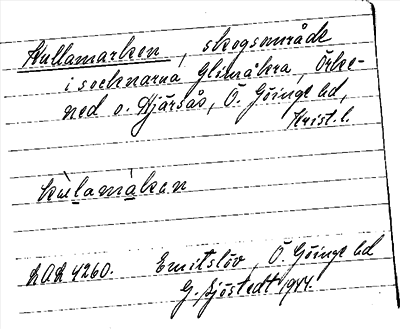 Kullamarken, skogsområde
i socknarna Glimåkra, Örke-
ned o. Hjärsås, Ö. Göinge hd,
Krist. l.
kùlamákan
LAL 4260. Emitslöv, Ö. Göinge hd
G. Sjöstedt 1944.